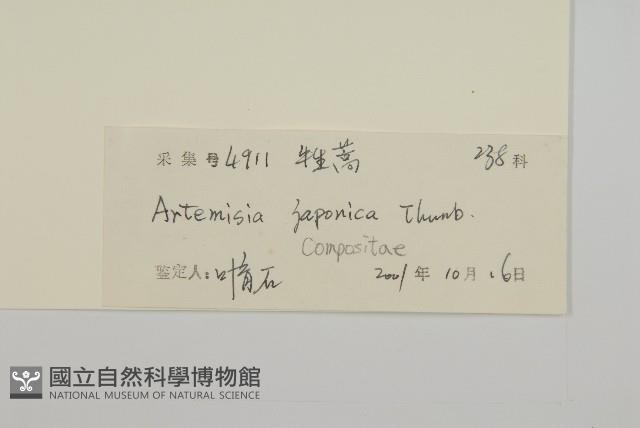 采集号 4911 牡蒿 238 科
Artemisia japonica Thunb.
Compositae
鉴定人: 叶育石 2001 年 10 月 16 日
國立自然科學博物館
NATIONAL MUSEUM OF NATURAL SCIENCE